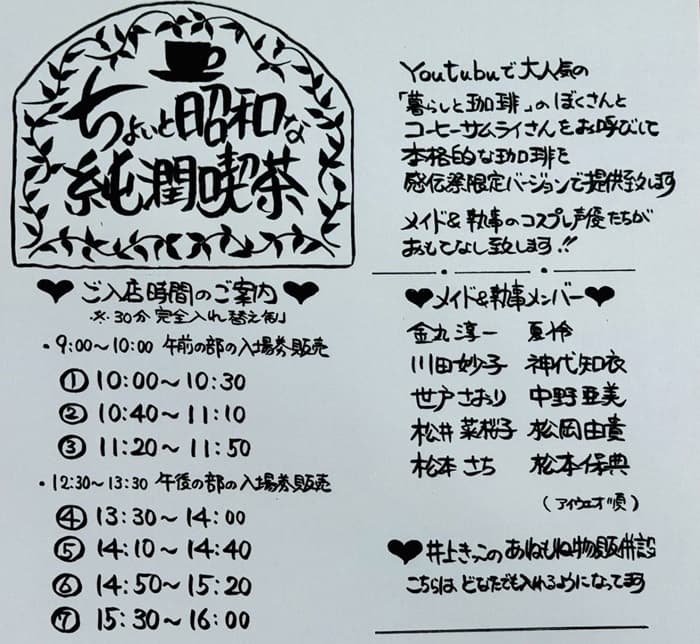 ちょいと昭和な
純潤喫茶
Youtubuで大人気の
「暮らしと珈琲」のぼくさんと
コーヒーサムライさんをお呼びして
本格的な珈琲を
感伝祭限定バージョンで提供致します
メイド&執事のコスプレ声優たちが
おもてなし致します!!
ご入店時間のご案内
※30分完全入れ替え制
・9:00〜10:00 午前の部の入場券販売
① 10:00〜10:30
② 10:40〜11:10
③ 11:20〜11:50
・12:30〜13:30 午後の部の入場券販売
④ 13:30〜14:00
⑤ 14:10〜14:40
⑥ 14:50〜15:20
⑦ 15:30〜16:00
メイド&執事メンバー
金丸淳一 夏怜
川田妙子 神代知衣
世戸さおり 中野亜美
松井菜桜子 松岡由貴
松本さち 松本保典
(アイウエオ順)
井上きっこのあねもね物販併設
こちらは、どなたでも入れるようになってます